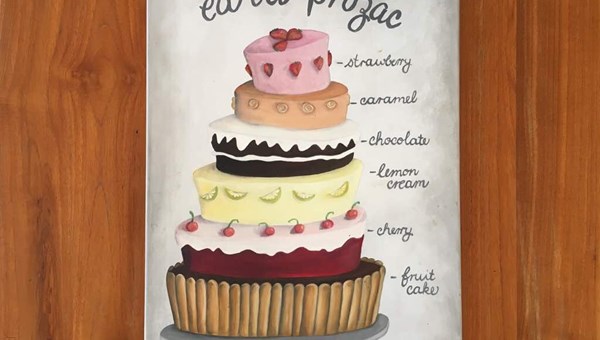 prozac
- strawberry
- caramel
- chocolate
- lemon
cream
- cherry
- fruit
cake